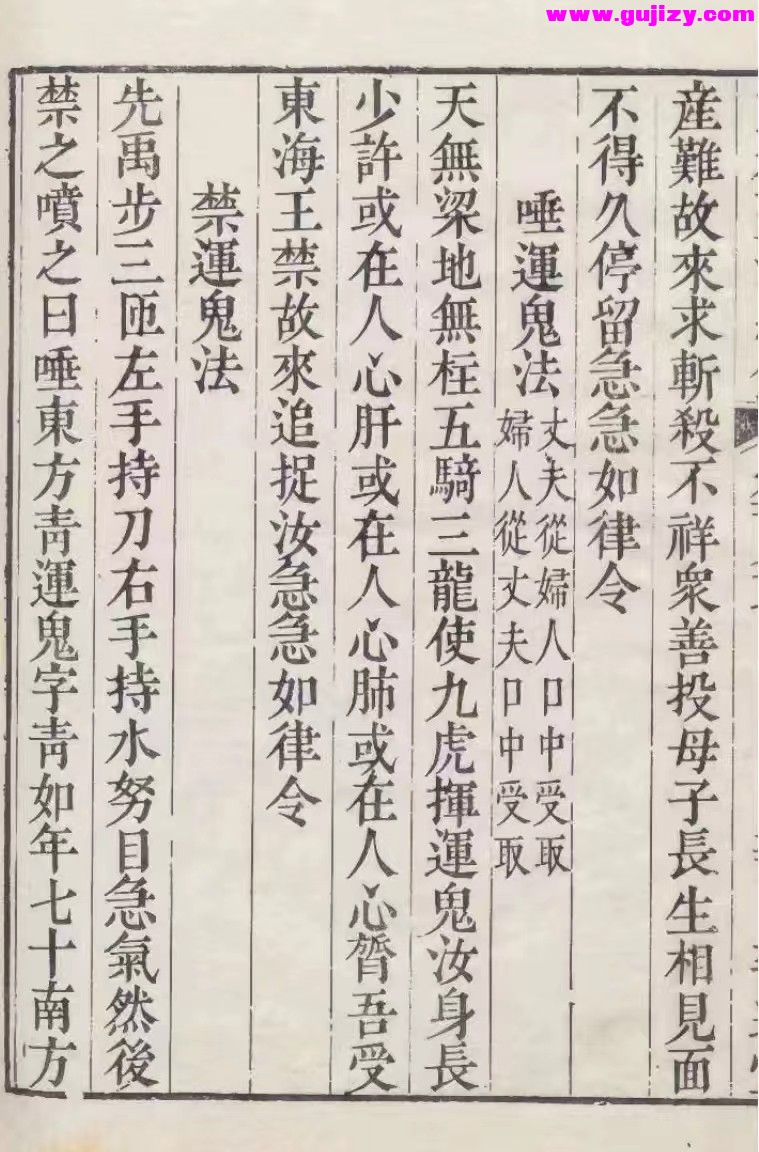 www.gujizy.com
産難故來求斬殺不祥衆善投母子長生相見面
不得久停留急急如律令
唾運鬼法
丈夫從婦人口中受取
婦人從丈夫口中受取
天無梁地無柱五騎三龍使九虎揮運鬼汝身長
少許或在人心肝或在人心肺或在人心膂吾受
東海王禁故來追捉汝急急如律令
禁運鬼法
先禹步三匝左手持刀右手持水努目急氣然後
禁之噴之曰唾東方靑運鬼字靑如年七十南方